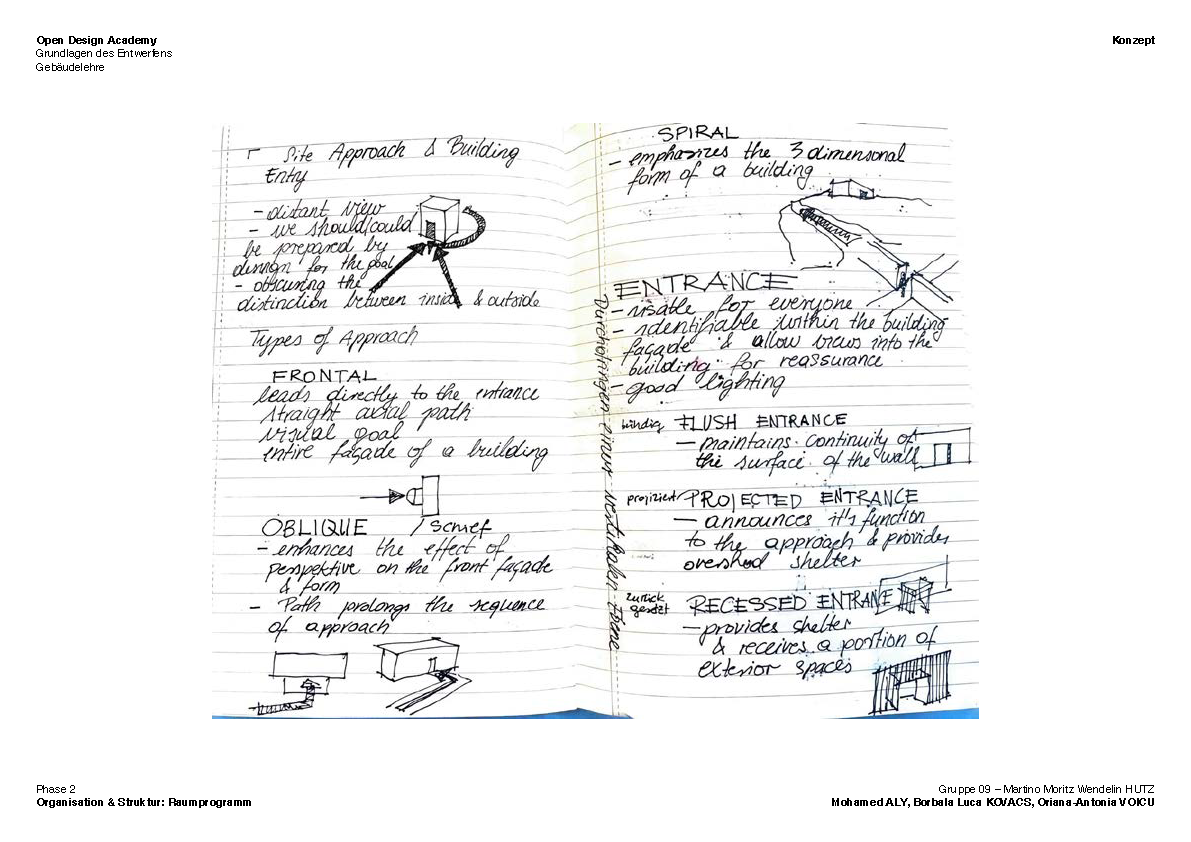 Open Design Academy
Grundlagen des Entwerfens
Gebäudelehre
Konzept
Site Approach & Building
Entry
- distant view
- we should/could
be prepared by
design for the goal
- obscuring the
distinction between inside & outside
Types of Approach
FRONTAL
leads directly to the entrance
straight axial path
visual goal
entire façade of a building
OBLIQUE / Schief
- enhances the effect of
perspektive on the front façade
& form
- Path prolongs the sequence
of approach
Durchdringen einer vertikalen Ebene
SPIRAL
- emphasizes the 3 dimensonal
form of a building
ENTRANCE
- visable for everyone
- identifiable within the building
façade & allow views into the
building for reassurance
- good lighting
bündig FLUSH ENTRANCE
- maintains continuity of
the surface of the wall
projiziert PROJECTED ENTRANCE
- announces it's function
to the approach & provides
overshead shelter
zurück
gesetzt RECESSED ENTRANCE
- provides shelter
& receives a portion of
exterior spaces
Phase 2
Organisation & Struktur: Raumprogramm
Gruppe 09 – Martino Moritz Wendelin HUTZ
Mohamed ALY, Borbala Luca KOVACS, Oriana-Antonia VOICU